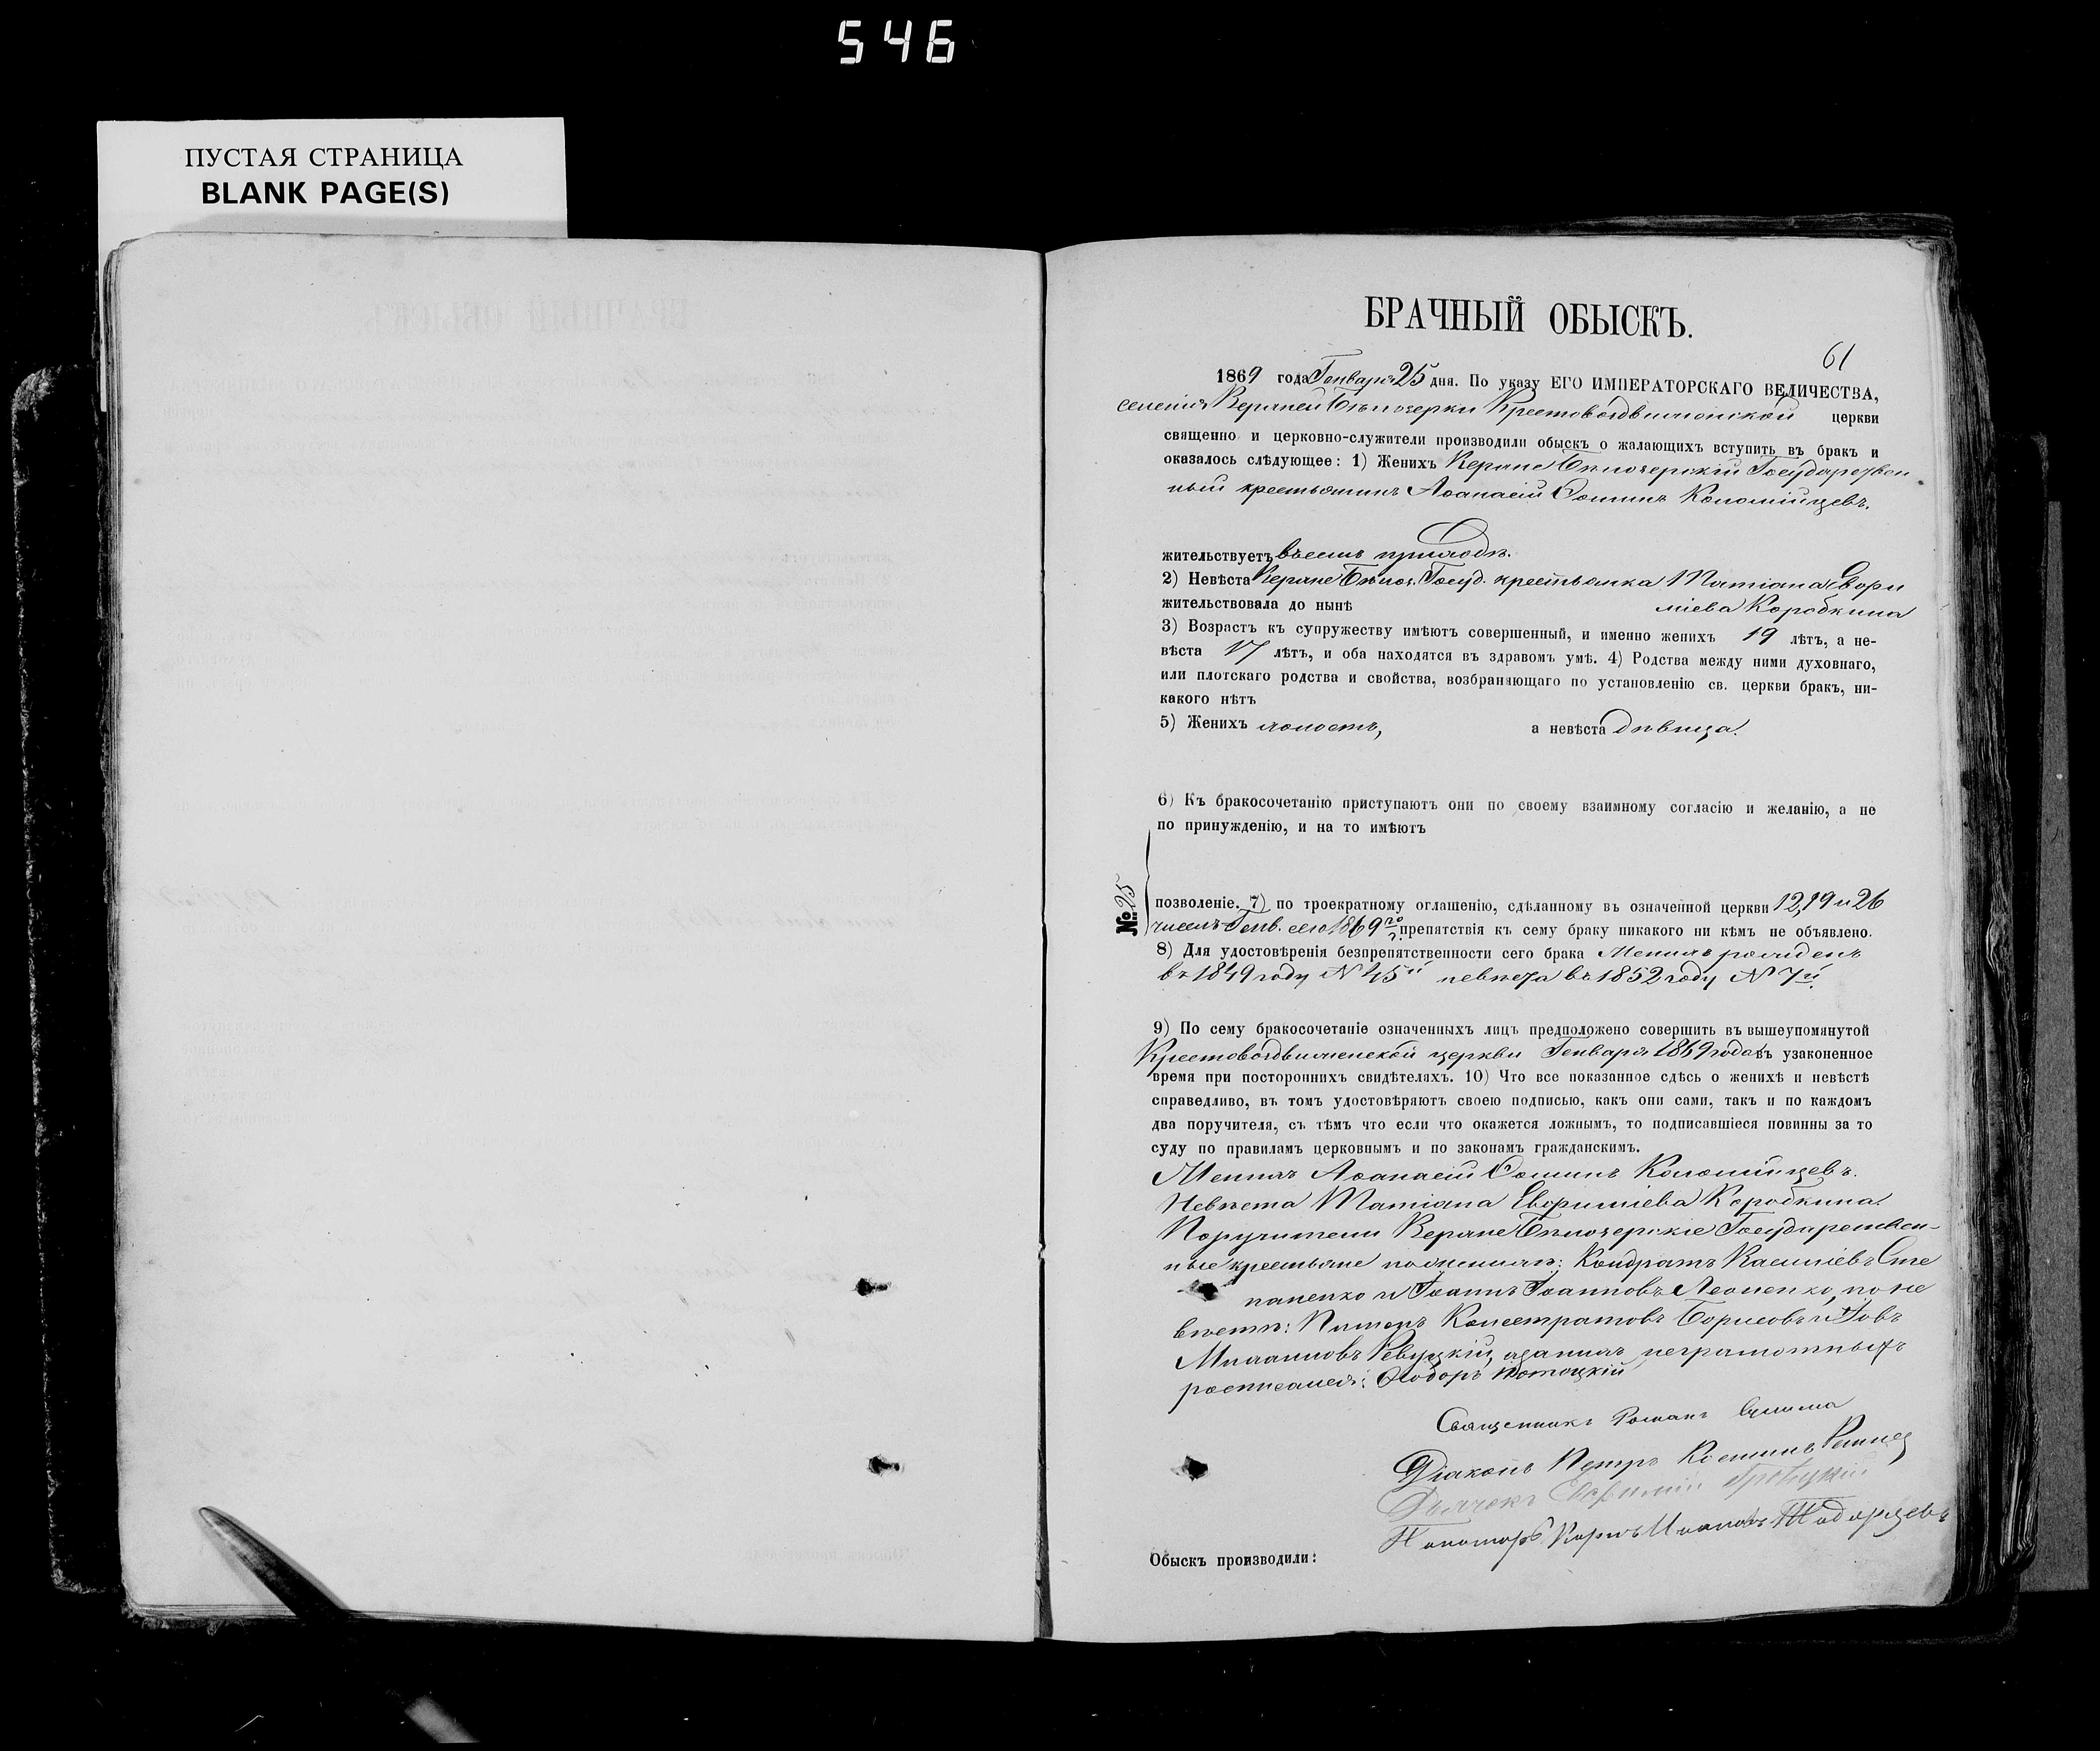 546
ПУСТАЯ СТРАНИЦА
BLANK PAGE(S)
БРАЧНЫЙ ОБЫСКЪ.
61
1869 года Генваря 25 дня. По указу ЕГО ИМПЕРАТОРСКАГО ВЕЛИЧЕСТВА,
селенія Верхней Бѣлозерки Крестовоздвиженской церкви
священно и церковно-служители производили обыскъ о жалающихъ вступить въ бракъ и
оказалось слѣдующее: 1) Женихъ Верхне Бѣлозерскій Государствен
ный крестьянинъ Аѳанасій Ѳоминъ Коломійцевъ.
жительствуетъ въ семъ приходѣ.
2) Невѣста Верхне Бѣлоз. Госуд. крестьянка Татіана Евфи
жительствовала до нынѣ міева Коробкина
3) Возрастъ къ супружеству имѣютъ совершенный, и именно женихъ 19 лѣтъ, а не-
вѣста 17 лѣтъ, и оба находятся въ здравомъ умѣ. 4) Родства между ними духовнаго,
или плотскаго родства и свойства, возбраняющаго по установленію св. церкви бракъ, ни-
какого нѣтъ
5) Женихъ холостъ, а невѣста дѣвица.
6) Къ бракосочетанію приступаютъ они по своему взаимному согласію и желанію, а не
по принужденію, и на то имѣютъ
№ 25
позволеніе. 7) по троекратному оглашенію, сдѣланному въ означенной церкви 12, 19 и 26
чиселъ Генв. сего 1869 го г. препятствія къ сему браку никакого ни кѣмъ не объявлено.
8) Для удостовѣренія безпрепятственности сего брака Женихъ рожденъ
въ 1849 году № 45й невѣста въ 1852 году № 7й.
9) По сему бракосочетаніе означенныхъ лицъ предположено совершить въ вышеупомянутой
Крестовоздвиженской церкви Генваря 1869 года въ узаконенное
время при постороннихъ свидѣтеляхъ. 10) Что все показанное сдѣсь о женихѣ и невѣстѣ
справедливо, въ томъ удостовѣряютъ своею подписью, какъ они сами, такъ и по каждомъ
два поручителя, съ тѣмъ что если что окажется ложнымъ, то подписавшіеся повинны за то
суду по правиламъ церковнымъ и по законамъ гражданскимъ.
Женихъ Аѳанасій Ѳоминъ Коломійцевъ.
Невѣста Татіана Евфиміева Коробкина.
Поручители Верхне Бѣлозерскіе Государствен-
ные крестьяне по женихѣ: Кондратъ Василіевъ Сте
паненко и Іоаннъ Іоанновъ Леоненко, по не
вѣстѣ: Пименъ Борисовъ и Іовъ
Михаиловъ Ревуцкій, а за нихъ неграмотныхъ
росписался: Ѳеодоръ Потоцкій
Священникъ Романъ
Діаконъ Петръ
Дьячокъ Евфимій
Пономарь
Обыскъ производили: